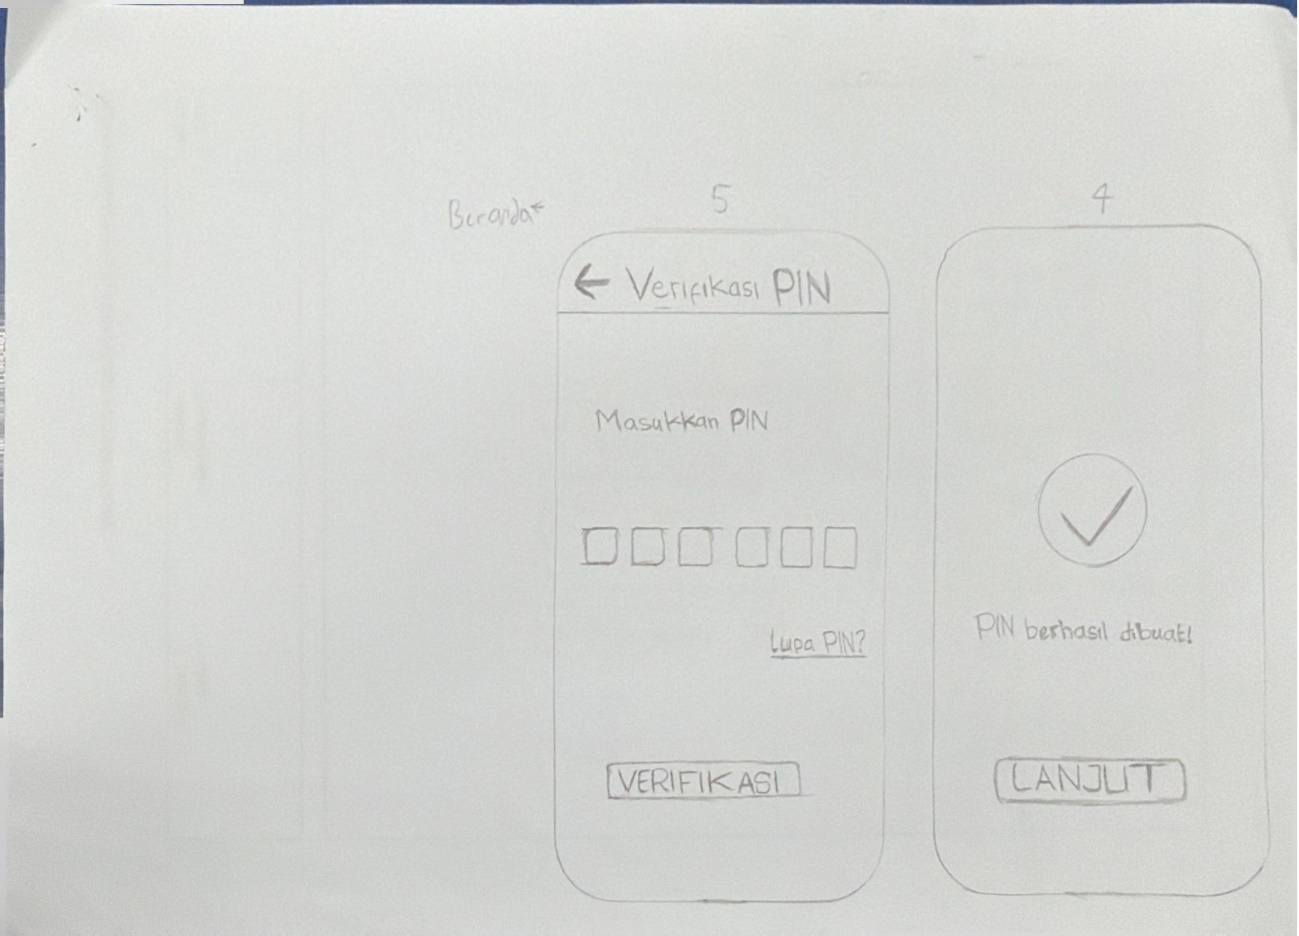 5
4
Beranda ←
← Verifikasi PIN
Masukkan PIN
Lupa PIN?
VERIFIKASI
PIN berhasil dibuat!
LANJUT